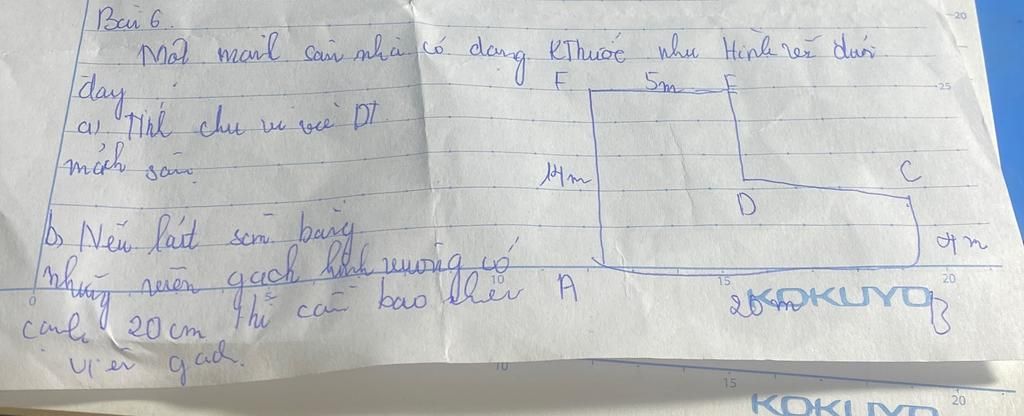 Bài 6
Một mảnh sân nhà có dạng KThước như Hình vẽ dưới
đây
a) Tính chu vi và DT
mảnh sân
b) Nếu lát sân bằng
những viên gạch hình vuông có
cạnh 20cm thì cần bao nhiêu
viên gạch.
F 5m E
14m
D
C
4m
A
20m
B
20
25
0
10
15
20
KOKUYO
10
15
20
KOKUYO